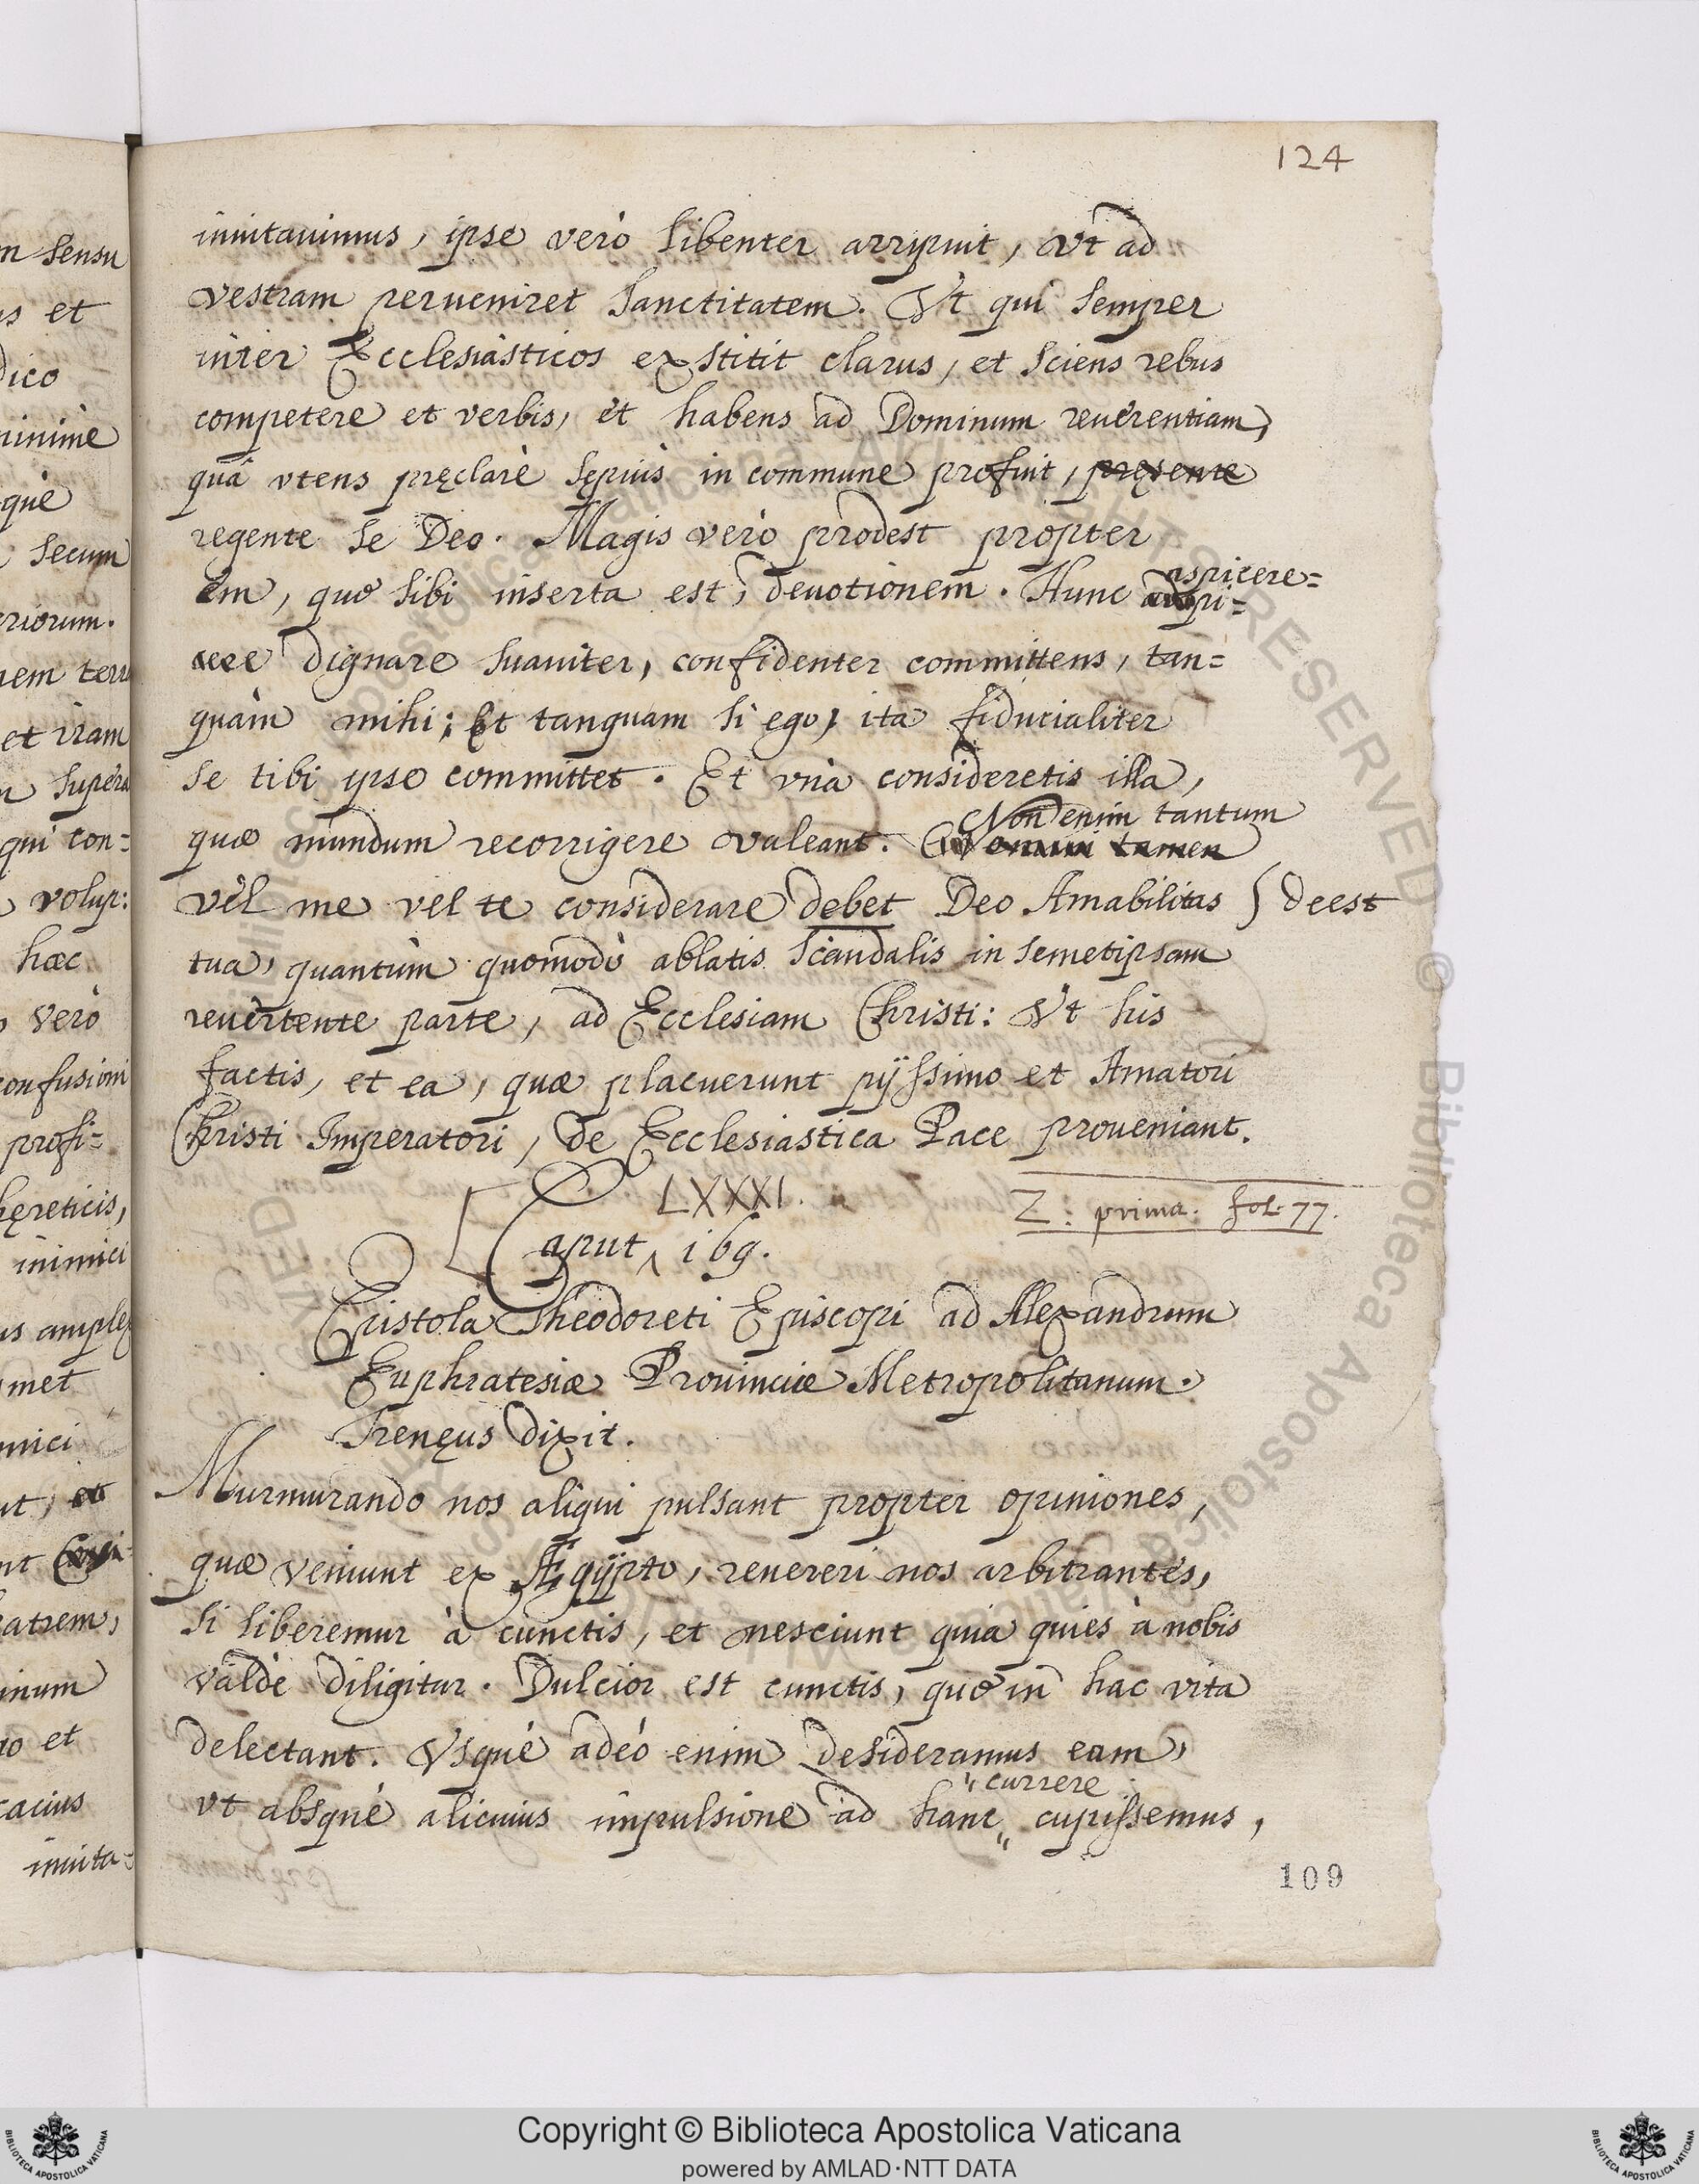 124
inuitauimus, ipse verò libenter arripuit, vt ad
vestram perueniret Sanctitatem. Vt qui semper
inter Ecclesiasticos exstitit clarus, et sciens rebus
competere et verbis, et habens ad Dominum reuerentiam,
quâ vtens pręclarè sępiùs in commune profuit, pręsente
regente se Deo. Magis verò prodest propter
em, quę sibi inserta est, deuotionem. Hunc aspicere=
dignare suauiter, confidenter committens, tan=
quàm mihi; Et tanquam si ego, ita fiducialiter
se tibi ipse committet. Et vnà consideretis illa,
quæ mundum recorrigere valeant. Non enim tantum
omni tamen
vel me vel te considerare debet Deo Amabilitas } deest
tua, quantùm quomodò ablatis scandalis in semetipsam
reuertente parte, ad Ecclesiam Christi: Vt his
factis, et ea, quæ placuerunt pijssimo et Amatori
Christi Imperatori, de Ecclesiastica Pace proueniant.
LXXXI.
Z: prima. fol. 77.
[Caput ^ 169.
Epistola Theodoreti Episcopi ad Alexandrum
Euphratesiæ Prouinciæ Metropolitanum.
Irenęus dixit.
Murmurando nos aliqui pulsant propter opiniones,
quæ veniunt ex Ægÿpto, reuereri nos arbitrantes,
si liberemur à cunctis, et nesciunt quia quies à nobis
valdè diligitur. Dulcior est cunctis, quę in hac vita
delectant. Vsquè adeò enim desideramus eam,
vt absquè alicuius impulsione ad hanc " currere cupissemus,
109
n sensu
s et
dico
minimè
què
secum
eriorum.
nem terr
et iram
m supera
qui con=
volup:
hæc
verò
confusioni
profi=
hęreticis,
inimici
us amplex
met
mici
ut, et
nt
atrem,
inum
io et
cacius
inuita=
Copyright © Biblioteca Apostolica Vaticana
powered by AMLAD·NTT DATA